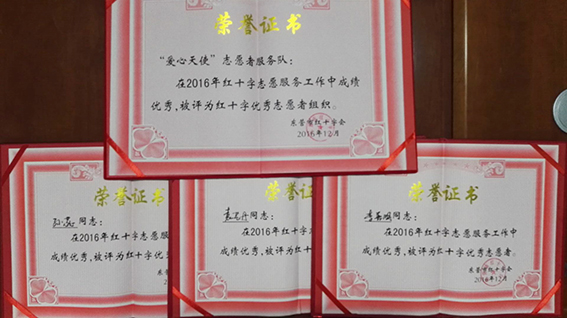 荣誉证书
“爱心天使”志愿者服务队:
在2016年红十字志愿服务工作中成绩
优秀,被评为红十字优秀志愿者组织。
东营市红十字会
2016年12月
荣誉证书
同志:
在2016年红十字志愿服
成绩优秀,被评为红十字优
荣誉
同志:
在2016年红十
成绩优秀,被评为
荣誉证书
同志:
在2016年红十字志愿服务工作中
成绩优秀,被评为红十字优秀志愿者。
东营市红十字会
2016年12月